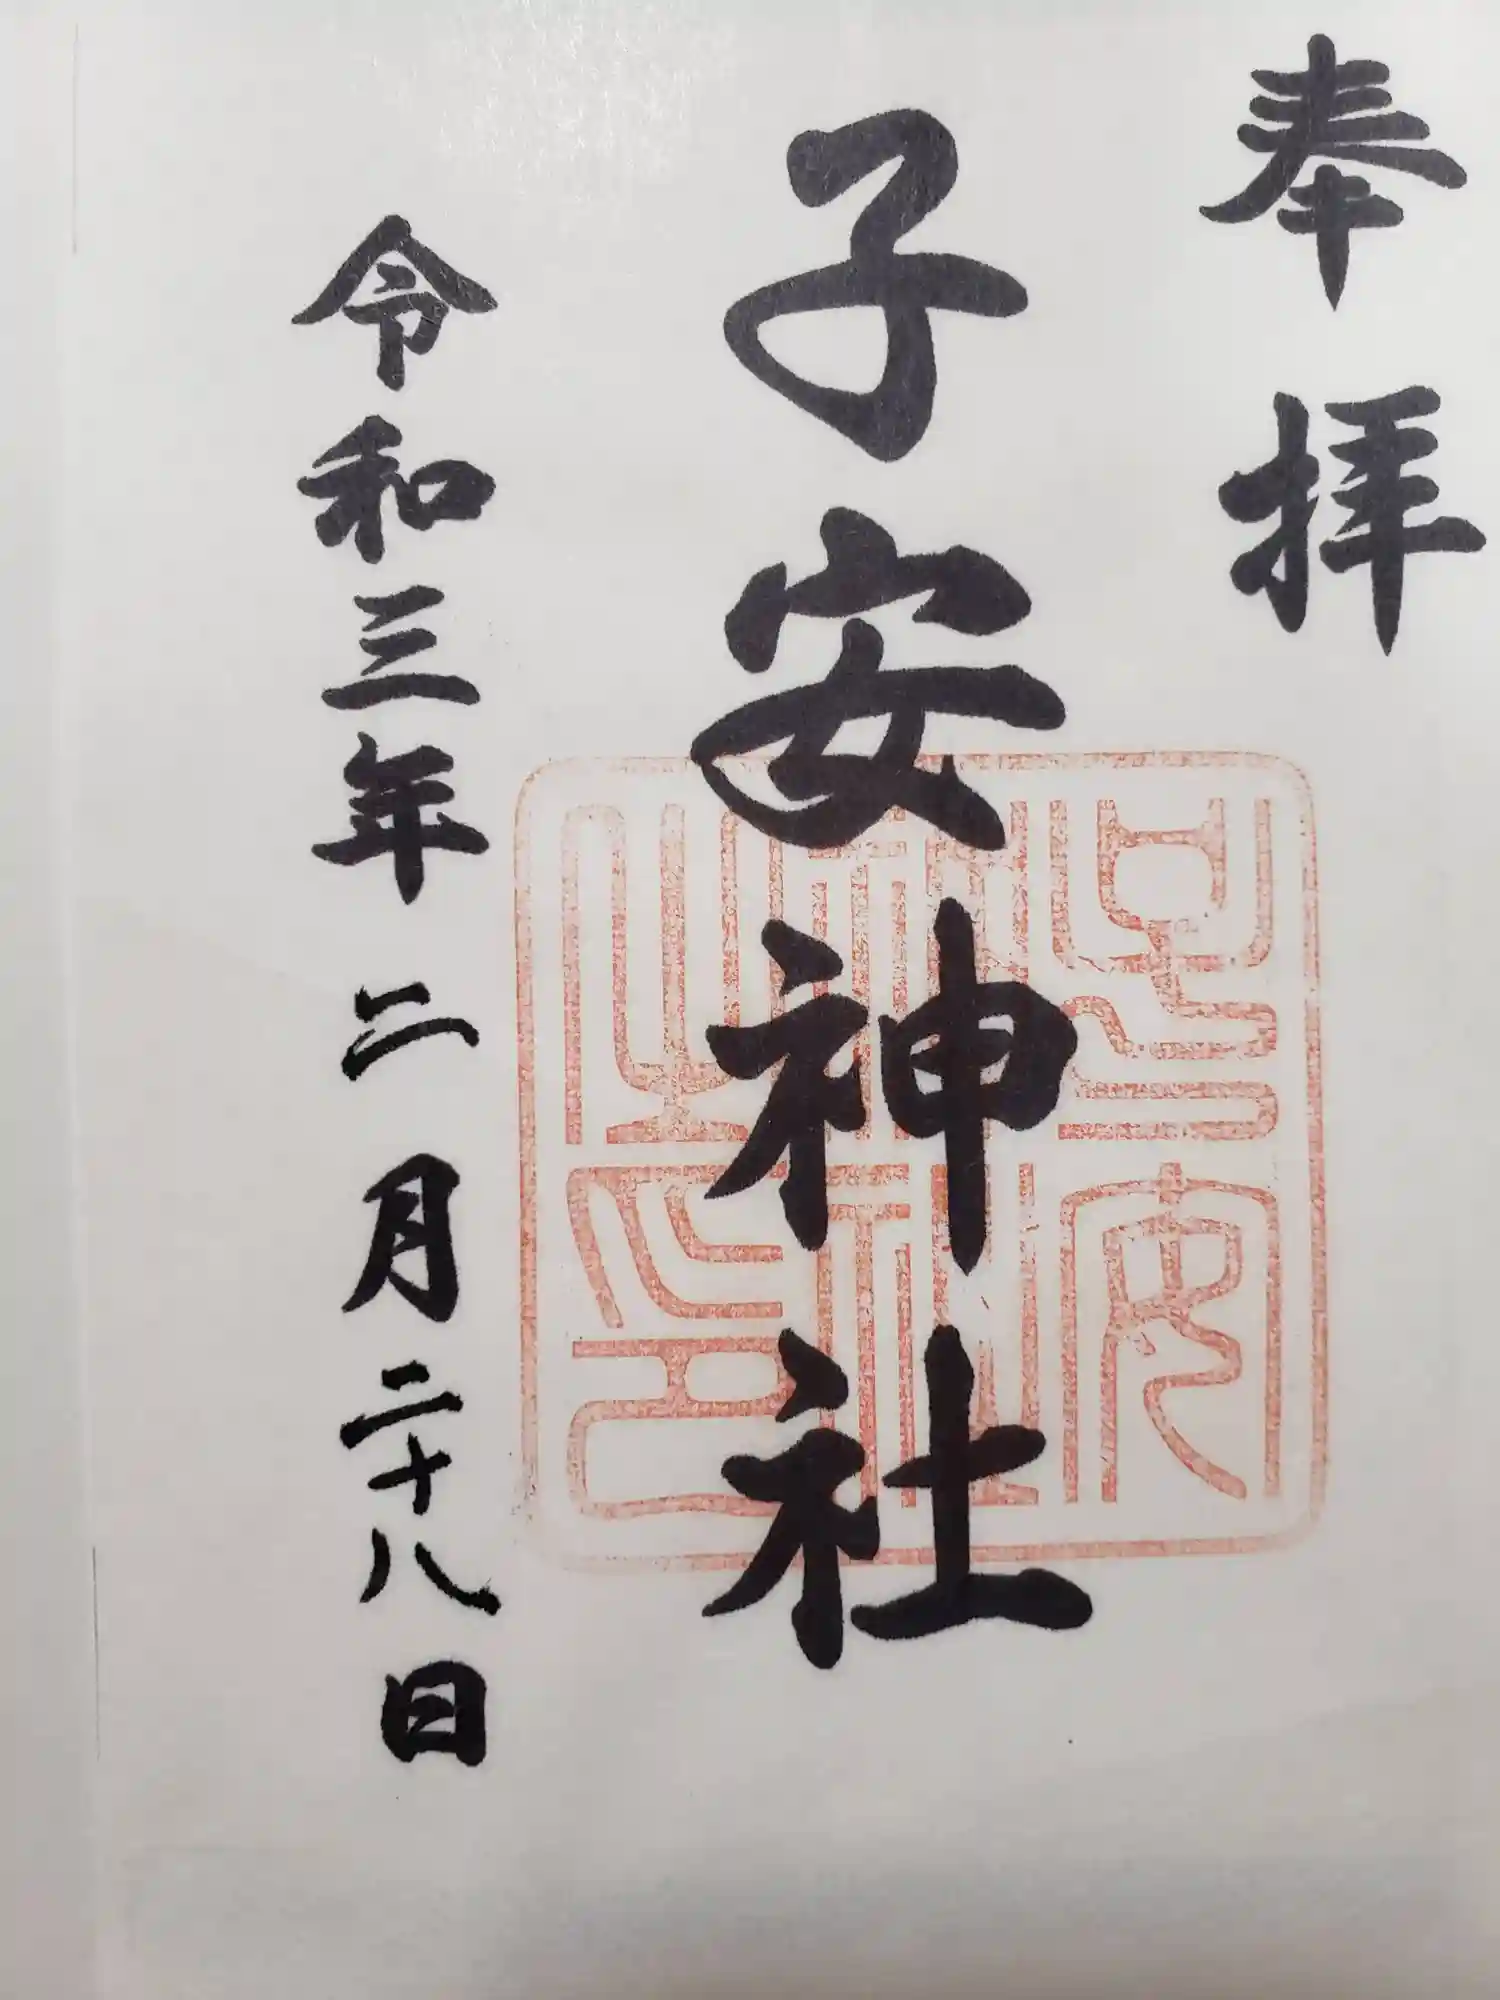 奉拝
子安神社
子安神社之印
令和三年二月二十八日